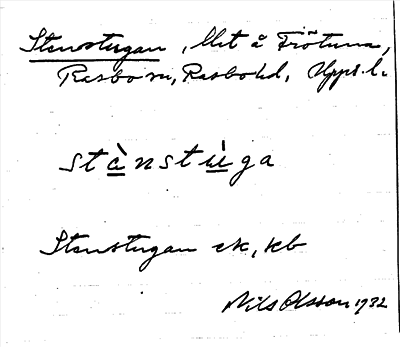 Stenstugan, lht å Frötuna,
Rasbo sn, Rasbo hd, Uppl. l.
stànstùga
Stenstugan ek, kb
Nils Olsson 1932